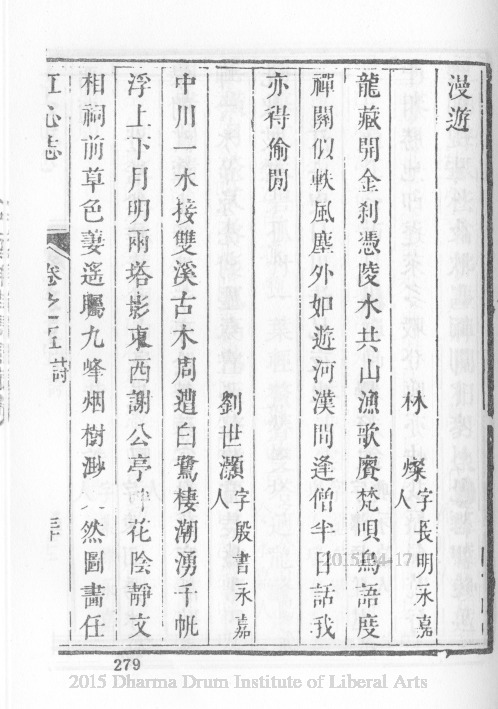 漫遊
林　燦字長明永嘉人
龍藏開金刹憑陵水共山漁歌賡梵唄鳥語度
禪關似軼風塵外如遊河漢間逢僧半日話我
亦得偷閒
劉世灝字殷書永嘉人
中川一水接雙溪古木周遭白鷺棲潮湧千帆
浮上下月明兩塔影東西謝公亭　花陰靜文
相祠前草色萋遙矚九峰烟樹渺　然圖畫任
江心志　卷之五　詩　三十
279
2015-04-17
2015 Dharma Drum Institute of Liberal Arts